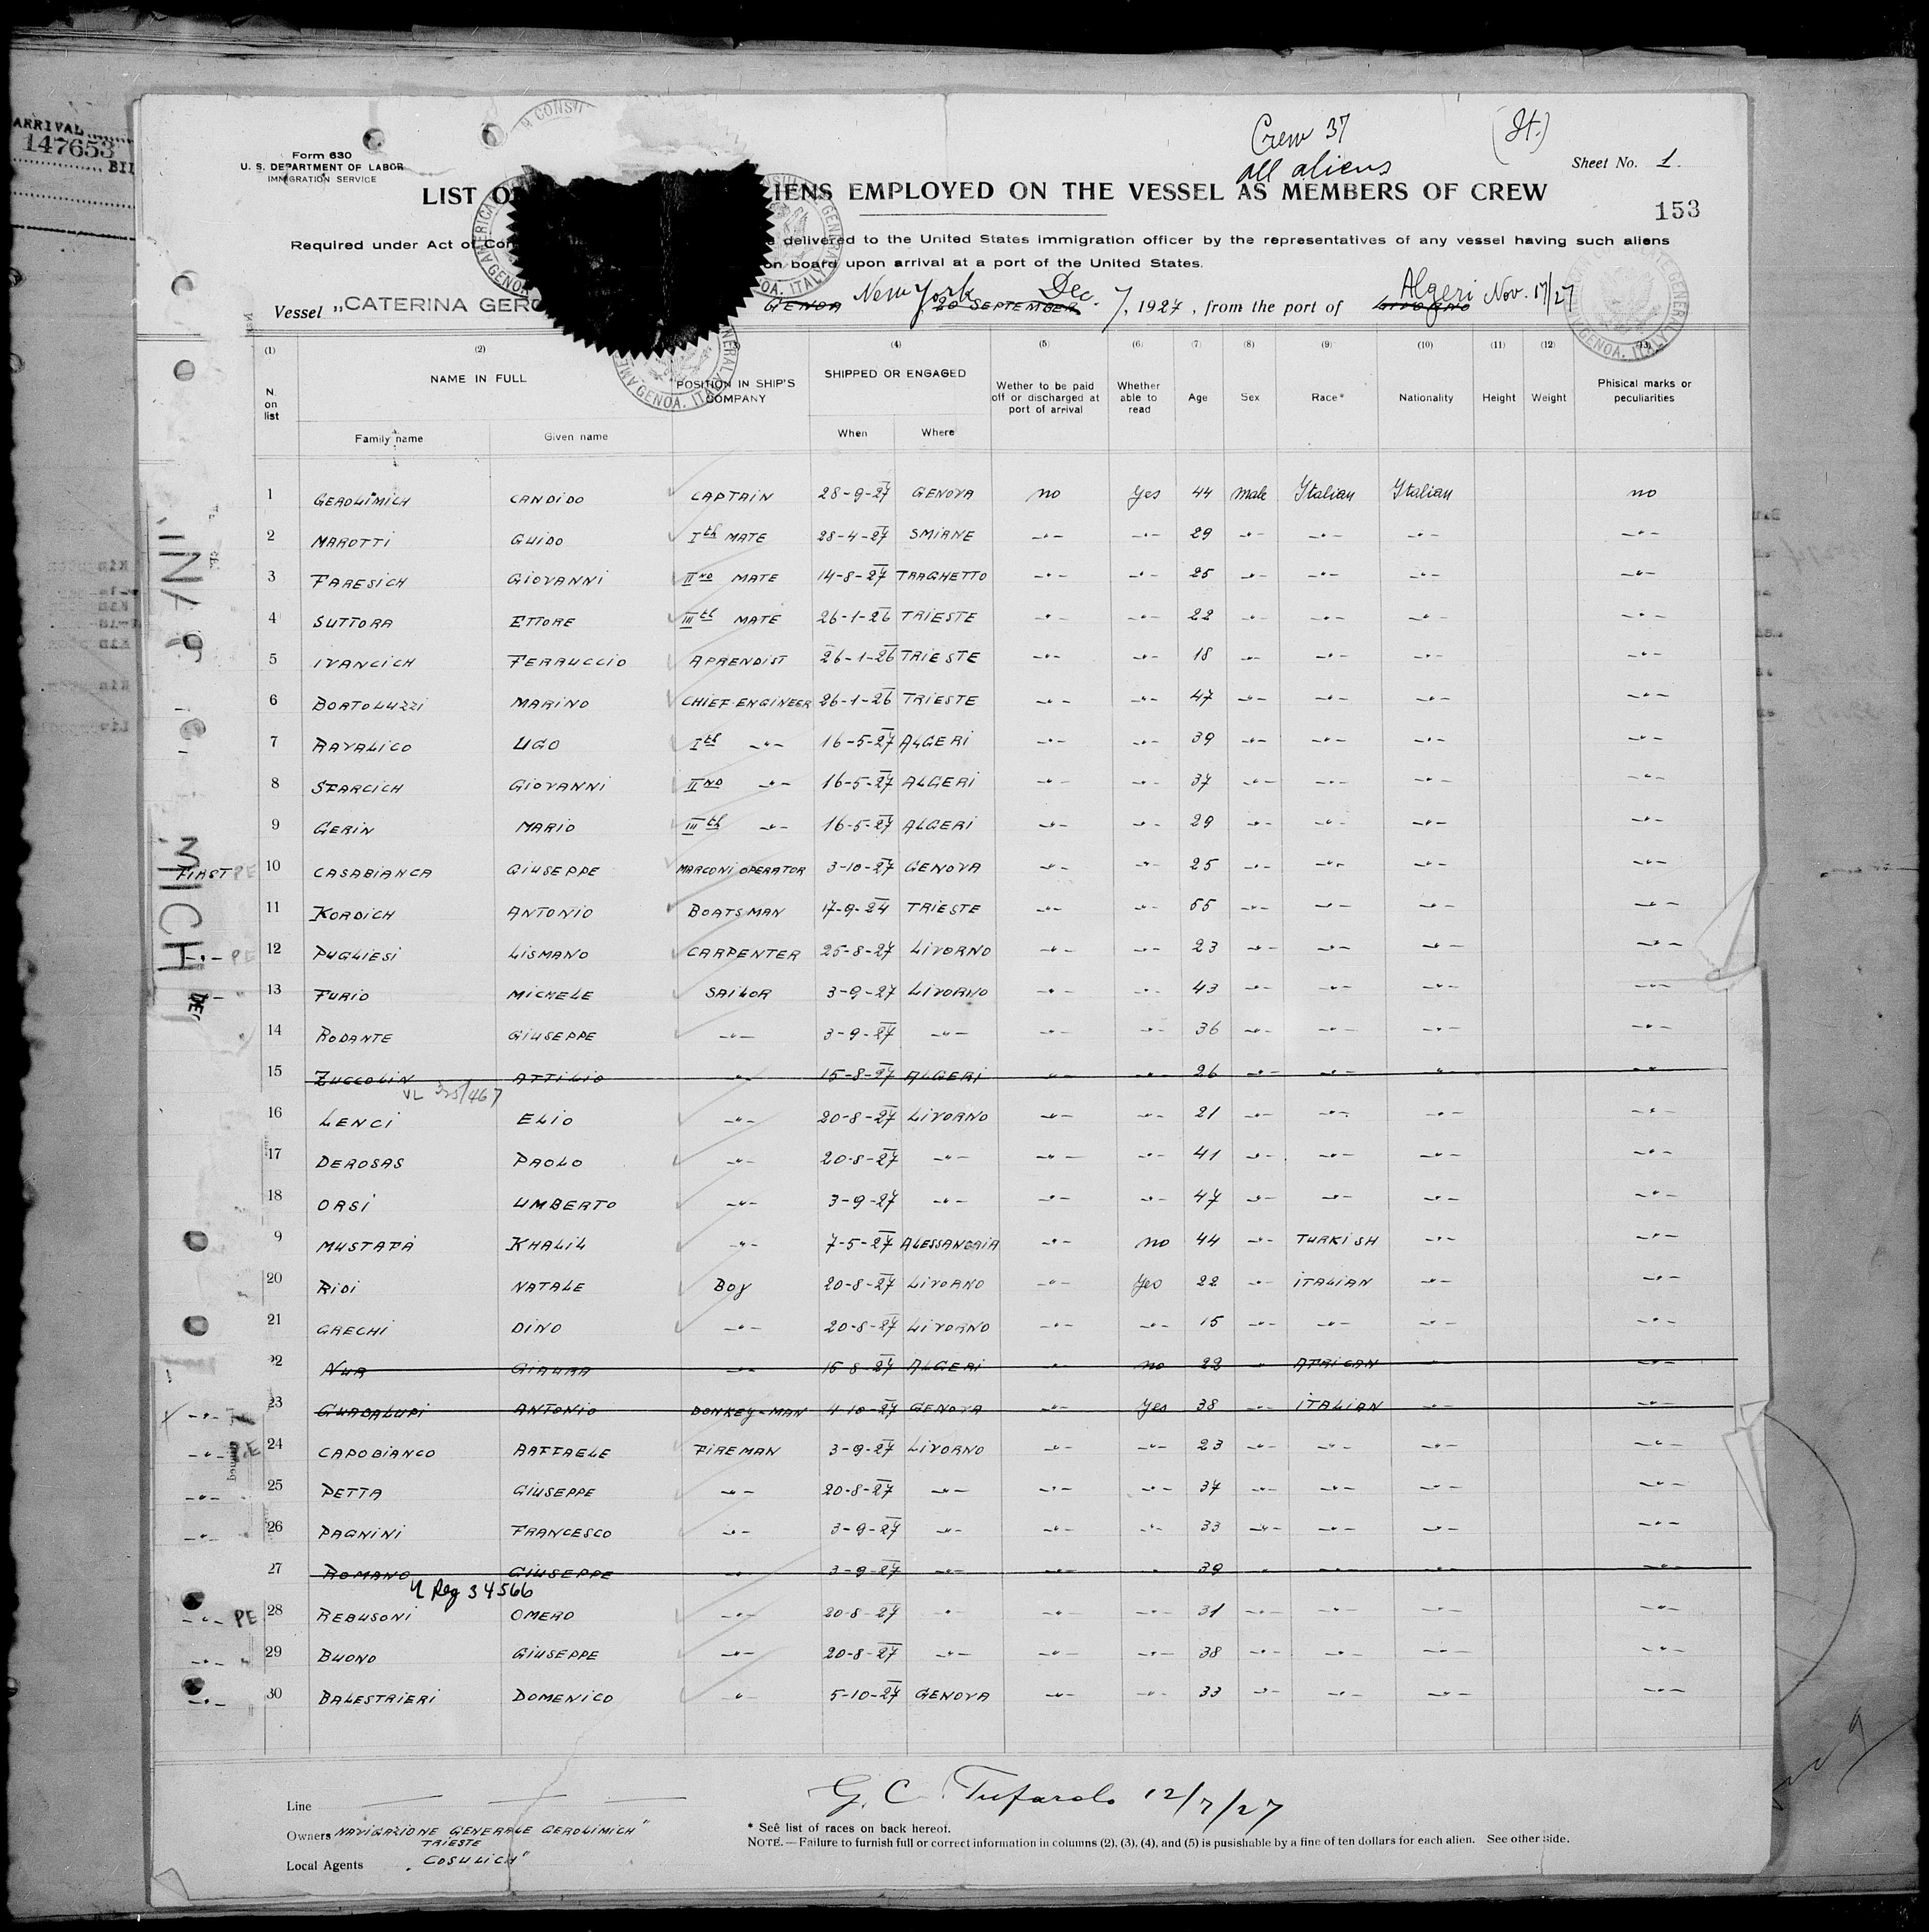 ARRIVAL
147653
Crew 37
all aliens
(It.)
Form 630
U. S. DEPARTMENT OF LABOR
IMMIGRATION SERVICE
Sheet No. 1.
LIST O IENS EMPLOYED ON THE VESSEL AS MEMBERS OF CREW
153
Required under Act of Con e delivered to the United States immigration officer by the representatives of any vessel having such aliens
on board upon arrival at a port of the United States.
Vessel „CATERINA GERO GENOA New York 20 SEPTEMBER Dec. 7, 1927, from the port of LIVORNO Algeri Nov. 17/27
(1) (2) (3) (4) (5) (6) (7) (8) (9) (10) (11) (12) (13)
N. on list NAME IN FULL POSITION IN SHIP'S COMPANY SHIPPED OR ENGAGED Wether to be paid off or discharged at port of arrival Whether able to read Age Sex Race* Nationality Height Weight Phisical marks or peculiarities
Family name Given name When Where
1 GEROLIMICH CANDIDO CAPTAIN 28-9-27 GENOVA no Yes 44 male Italian Italian no
2 MAROTTI GUIDO Ith MATE 28-4-27 SMIRNE -"- -"- 29 -"- -"- -"- -"-
3 FARESICH GIOVANNI IIND MATE 14-8-27 TRAGHETTO -"- -"- 25 -"- -"- -"- -"-
4 SUTTORA ETTORE IIIth MATE 26-1-26 TRIESTE -"- -"- 22 -"- -"- -"- -"-
5 IVANCICH FERRUCCIO APRENDIST 26-1-26 TRIESTE -"- -"- 18 -"- -"- -"- -"-
6 BORTOLUZZI MARINO CHIEF-ENGINEER 26-1-26 TRIESTE -"- -"- 47 -"- -"- -"- -"-
7 RAVALICO UGO Ith -"- 16-5-27 ALGERI -"- -"- 39 -"- -"- -"- -"-
8 STARCICH GIOVANNI IIND -"- 16-5-27 ALGERI -"- -"- 37 -"- -"- -"- -"-
9 GERIN MARIO IIIth -"- 16-5-27 ALGERI -"- -"- 29 -"- -"- -"- -"-
FIRST PE 10 CASABIANCA GIUSEPPE MARCONI OPERATOR 3-10-27 GENOVA -"- -"- 25 -"- -"- -"- -"-
11 KORDICH ANTONIO BOATSMAN 17-9-24 TRIESTE -"- -"- 55 -"- -"- -"- -"-
-"- PE 12 PUGLIESI LISMANO CARPENTER 25-8-27 LIVORNO -"- -"- 23 -"- -"- -"- -"-
13 FURIO MICHELE SAILOR 3-9-27 LIVORNO -"- -"- 43 -"- -"- -"- -"-
14 RODANTE GIUSEPPE -"- 3-9-27 -"- -"- -"- 36 -"- -"- -"- -"-
15 ZUCCOLIN ATTILIO -"- 15-8-27 ALGERI -"- -"- 26 -"- -"- -"- -"-
VL 325/467
16 LENCI ELIO -"- 20-8-27 LIVORNO -"- -"- 21 -"- -"- -"- -"-
17 DEROSAS PAOLO -"- 20-8-27 -"- -"- -"- 41 -"- -"- -"- -"-
18 ORSI UMBERTO -"- 3-9-27 -"- -"- -"- 47 -"- -"- -"- -"-
9 MUSTAFÀ KHALIL -"- 7-5-27 ALESSANDRIA -"- no 44 -"- TURKISH -"- -"-
20 RIDI NATALE BOY 20-8-27 LIVORNO -"- Yes 22 -"- ITALIAN -"- -"-
21 GRECHI DINO -"- 20-8-27 LIVORNO -"- -"- 15 -"- -"- -"- -"-
22 NUR GIAURA -"- 15-8-27 ALGERI -"- no 22 " AFRICAN -"- -"-
-"- 23 GUADALUPI ANTONIO DONKEY-MAN 4-10-27 GENOVA -"- Yes 38 -"- ITALIAN -"- -"-
-"- PE 24 CAPOBIANCO RAFFAELE FIREMAN 3-9-27 LIVORNO -"- -"- 23 -"- -"- -"- -"-
-"- 25 PETTA GIUSEPPE -"- 20-8-27 -"- -"- -"- 37 -"- -"- -"- -"-
-"- 26 PAGNINI FRANCESCO -"- 3-9-27 -"- -"- -"- 33 -"- -"- -"- -"-
27 ROMANO GIUSEPPE -"- 3-9-27 -"- -"- -"- 39 " -"- -"- -"-
Reg 34566
-"- PE 28 REBUSONI OMERO -"- 20-8-27 -"- -"- -"- 31 -"- -"- -"- -"-
-"- 29 BUONO GIUSEPPE -"- 20-8-27 -"- -"- -"- 38 -"- -"- -"- -"-
-"- 30 BALESTRIERI DOMENICO -"- 5-10-27 GENOVA -"- -"- 33 -"- -"- -"- -"-
G. C. Tufarolo 12/7/27
Line
Owners NAVIGAZIONE GENERALE GEROLIMICH"
TRIESTE
Local Agents „COSULICH"
* See list of races on back hereof.
NOTE. — Failure to furnish full or correct information in columns (2), (3), (4), and (5) is pusishable by a fine of ten dollars for each alien. See other side.